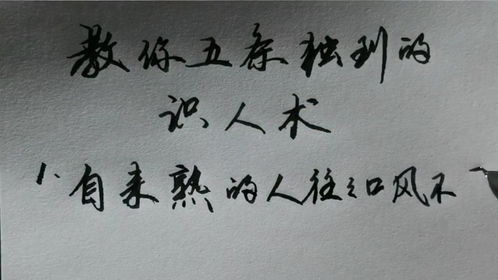 教你五条独到的
识人术
1、自来熟的人往之口风不